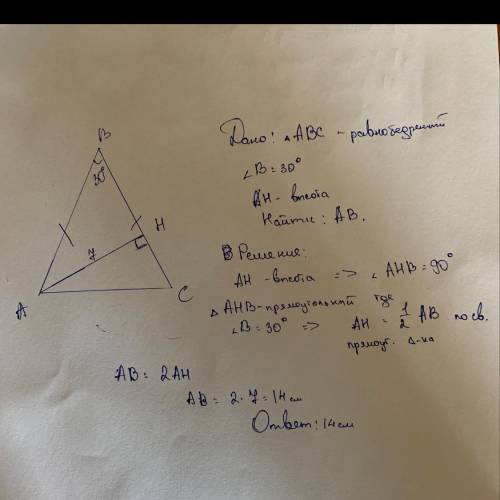 B
30°
H
7
A
C
Дано: △ABC - равнобедренный
∠B = 30°
AH - высота
Найти: AB.
Решение:
AH - высота => ∠AHB = 90°
△AHB - прямоугольный где
∠B = 30° => AH = 1/2 AB по св.
прямоуг. △-ка
AB = 2AH
AB = 2·7 = 14 см
Ответ: 14 см